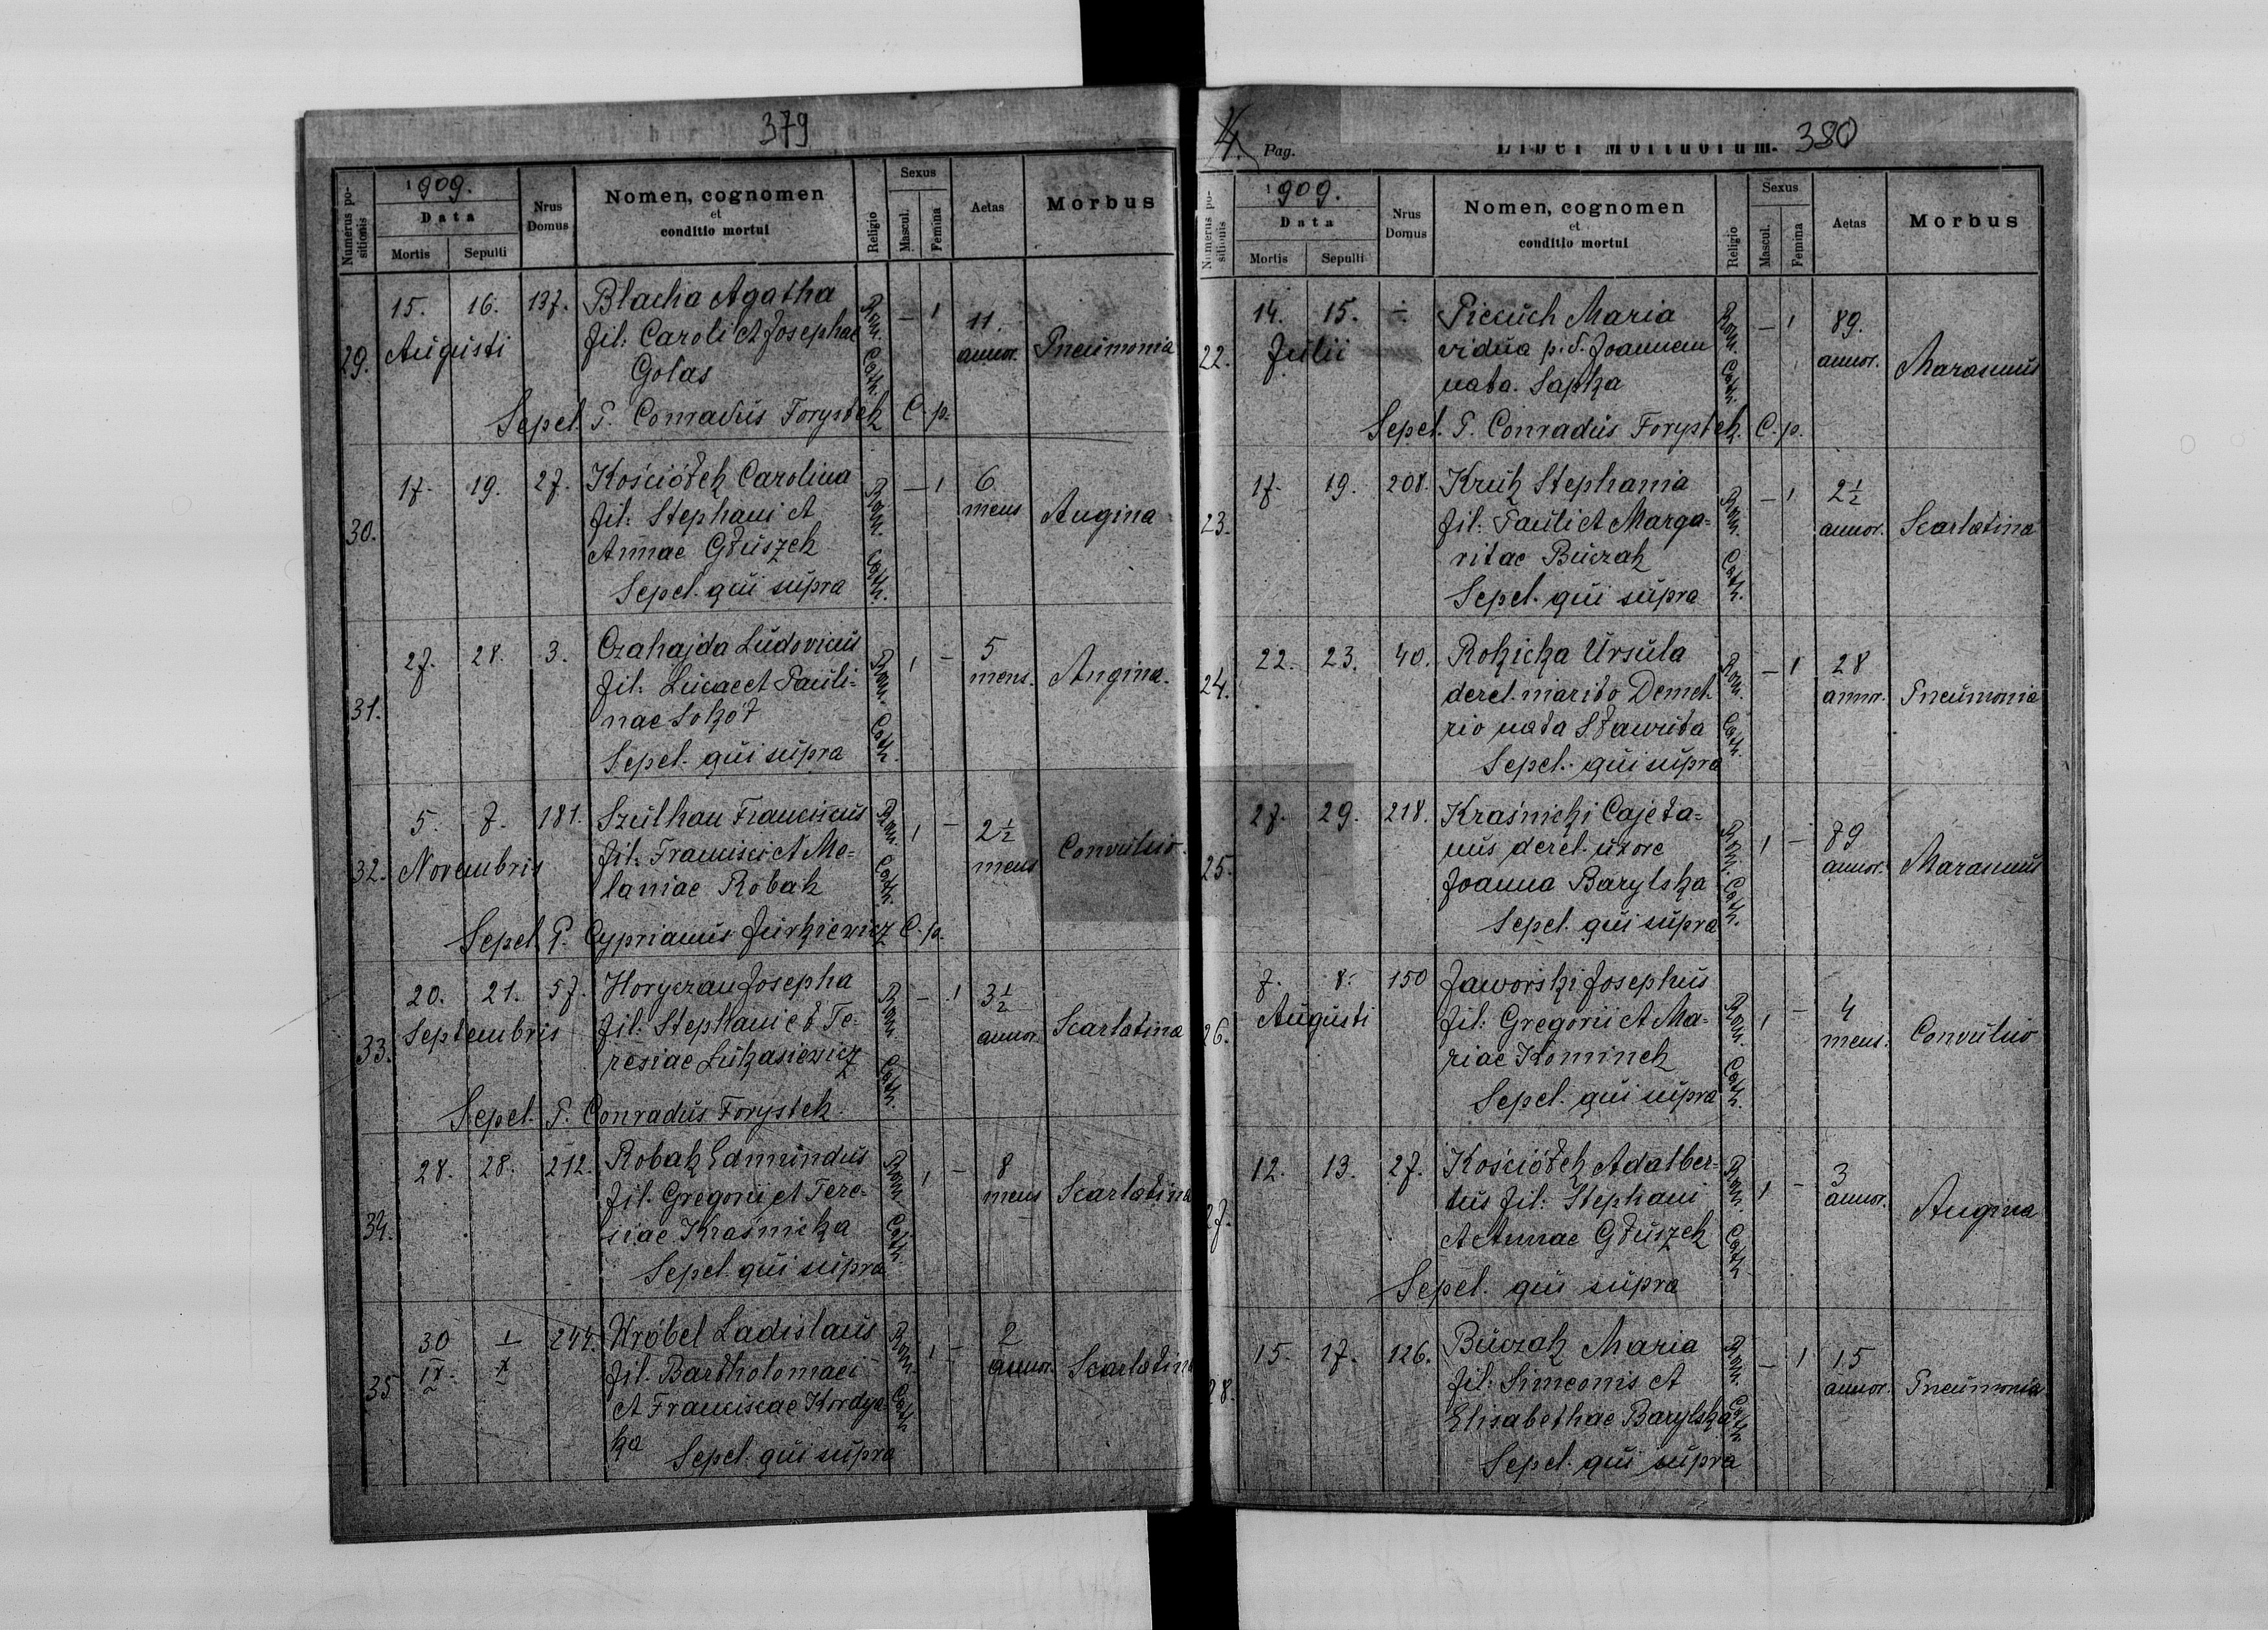 379
1909.
Numerus positionis
Data
Mortis
Sepulti
Nrus Domus
Nomen, cognomen
et
conditio mortui
Religio
Sexus
Mascul.
Femina
Aetas
Morbus
29.
15. 16. 137. Blacha Agatha Rom. Cath. — 1 11.
Augusti fil: Caroli et Josephae annor. Pneumonia
Golas
Sepel. P. Conradus Forystek C. p.
30.
17. 19. 27. Kościółek Carolina Rom. Cath. — 1 6
fil: Stephani et mens Angina
Annae Głuszek
Sepel. qui supra
31.
27. 28. 3. Czahajda Ludovicus Rom. Cath. 1 — 5
fil: Lucae et Pauli= mens. Angina.
nae Sokół
Sepel. qui supra
32.
5. 7. 181. Szulhan Franciscus Rom. Cath. 1 — 2½
Novembris fil: Francisci et Me= mens Convulsio.
laniae Robak
Sepel. P. Cyprianus Jurkiewicz C. p.
33.
20. 21. 57. Horyczan Josepha Rom. Cath. — 1 3½
Septembris fil: Stephani et Te= annor. Scarlatina
resiae Łukasiewicz
Sepel. P. Conradus Forystek
34.
28. 28. 212. Robak Edmundus Rom. Cath. 1 — 8
fil. Gregorii et Tere= mens Scarlatina
siae Kraśnicka
Sepel. qui supra
35
30 1 244. Wróbel Ladislaus Rom. Cath 1 — 2
IX. X fil. Bartholomaei annor. Scarlatina
et Franciscae Kordya=
ka Sepel. qui supra
4. Pag.
Liber Mortuorum. 380
1909.
Numerus positionis
Data
Mortis
Sepulti
Nrus Domus
Nomen, cognomen
et
conditio mortui
Religio
Sexus
Mascul.
Femina
Aetas
Morbus
22.
14. 15. ÷ Pieczuch Maria Rom. Cath. — 1 89.
Julii vidua p. d. Joannem annor. Marasmus
nata. Sapka
Sepel. P. Conradus Forystek. C. p.
23.
17. 19. 208. Kruk Stephania Rom. Cath. — 1 2½
fil: Pauli et Marga= annor. Scarlatina
ritae Buczak
Sepel. qui supra
24.
22. 23. 40. Rokicka Ursula Rom. Cath. — 1 28
derel. marito Demet annor. Pneumonia
rio nata Sławuta
Sepel. qui supra
25.
27. 29. 218. Kraśnicki Cajeta= Rom. Cath. 1 — 89
nus derel. uxore annor. Marasmus
Joanna Barylska
Sepel. qui supra
26.
7. 8. 150 Jaworski Josephus Rom. Cath. 1 — 4
Augusti fil: Gregorii et Ma= mens. Convulsio
riae Kominek
Sepel. qui supra
27.
12. 13. 27. Kościółek Adalber= Rom. Cath 1 — 3
tus fil: Stephani annor. Angina
et Annae Głuszek
Sepel. qui supra
28.
15. 17. 126. Buczak Maria Rom. Cath. — 1 15
fil: Simeonis et annor. Pneumonia
Elisabethae Barylska
Sepel. qui supra